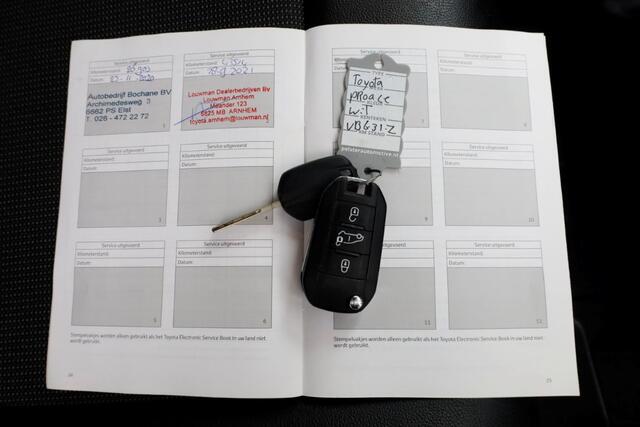 Service uitgevoerd
Kilometerstand:
Datum:
Autobedrijf Bochane BV
Archimedesweg 3
6662 PS Elst
T. 026 - 472 22 72
1
Service uitgevoerd
Kilometerstand:
Datum: 2021
Louwman Dealerbedrijven BV
Louwman Arnhem
Meander 123
6825 MB ARNHEM
toyota.arnhem@louwman.nl
Service uitgevoerd
Kilometerstand:
Datum:
3
Service uitgevoerd
Kilometerstand:
Datum:
4
Service uitgevoerd
Kilometerstand:
Datum:
5
Service uitgevoerd
Kilometerstand:
Datum:
6
Stempelvakjes worden alleen gebruikt als het Toyota Electronic Service Book in uw land niet
wordt gebruikt.
24
TYPE
Toyota
Proace
KLEUR
WIT
KENTEKEN
VBG31Z
KM STAND
pelsterautomotive.nl
Service uitgevoerd
8
Service uitgevoerd
9
Service uitgevoerd
Kilometerstand:
Datum:
10
Service uitgevoerd
Kilometerstand:
Datum:
11
Service uitgevoerd
Kilometerstand:
Datum:
12
Stempelvakjes worden alleen gebruikt als het Toyota Electronic Service Book in uw land niet
wordt gebruikt.
25